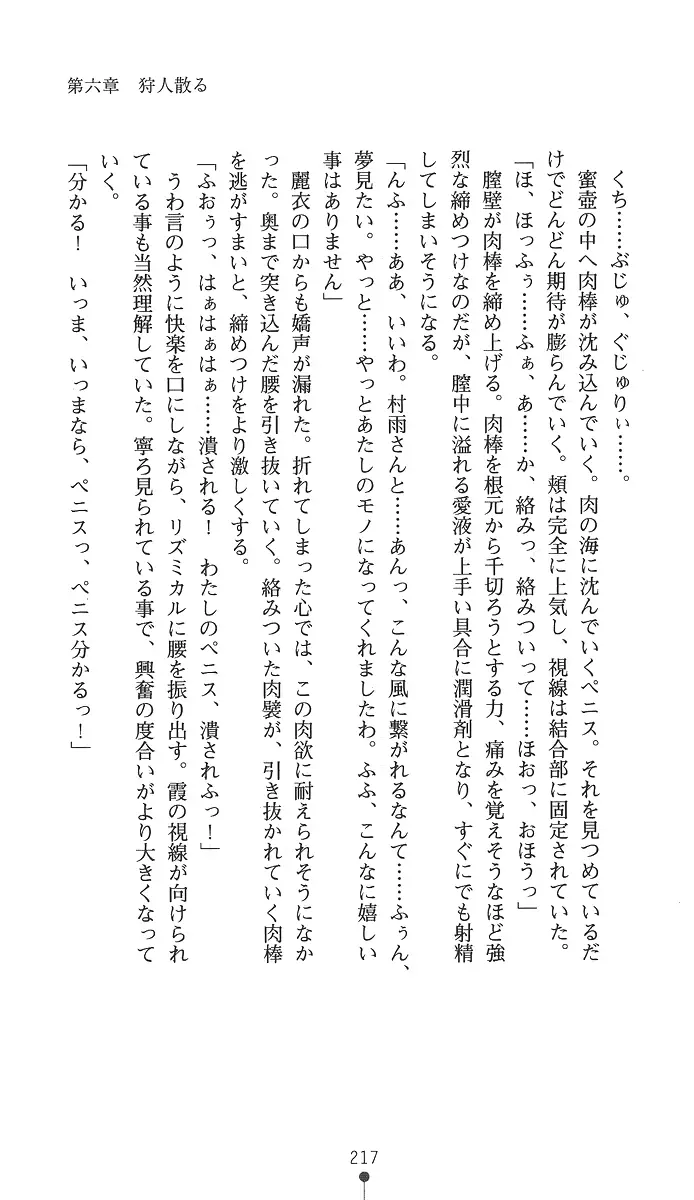 第六章　狩人散る
くち……ぶじゅ、ぐじゅりぃ……。
蜜壺の中へ肉棒が沈み込んでいく。肉の海に沈んでいくペニス。それを見つめているだ
けでどんどん期待が膨らんでいく。頬は完全に上気し、視線は結合部に固定されていた。
「ほ、ほっふぅ……ふぁ、あ……か、絡みっ、絡みついって……ほおっ、おほうっ」
膣壁が肉棒を締め上げる。肉棒を根元から千切ろうとする力、痛みを覚えそうなほど強
烈な締めつけなのだが、膣中に溢れる愛液が上手い具合に潤滑剤となり、すぐにでも射精
してしまいそうになる。
「んふ……ああ、いいわ。村雨さんと……あんっ、こんな風に繋がれるなんて……ふぅん、
夢見たい。やっと……やっとあたしのモノになってくれましたわ。ふふ、こんなに嬉しい
事はありません」
麗衣の口からも嬌声が漏れた。折れてしまった心では、この肉欲に耐えられそうになか
った。奥まで突き込んだ腰を引き抜いていく。絡みついた肉襞が、引き抜かれていく肉棒
を逃がすまいと、締めつけをより激しくする。
「ふおぅっ、はぁはぁはぁ……潰される！　わたしのペニス、潰されふっ！」
うわ言のように快楽を口にしながら、リズミカルに腰を振り出す。霞の視線が向けられ
ている事も当然理解していた。寧ろ見られている事で、興奮の度合いがより大きくなって
いく。
「分かる！　いっま、いっまなら、ペニスっ、ペニス分かるっ！」
217